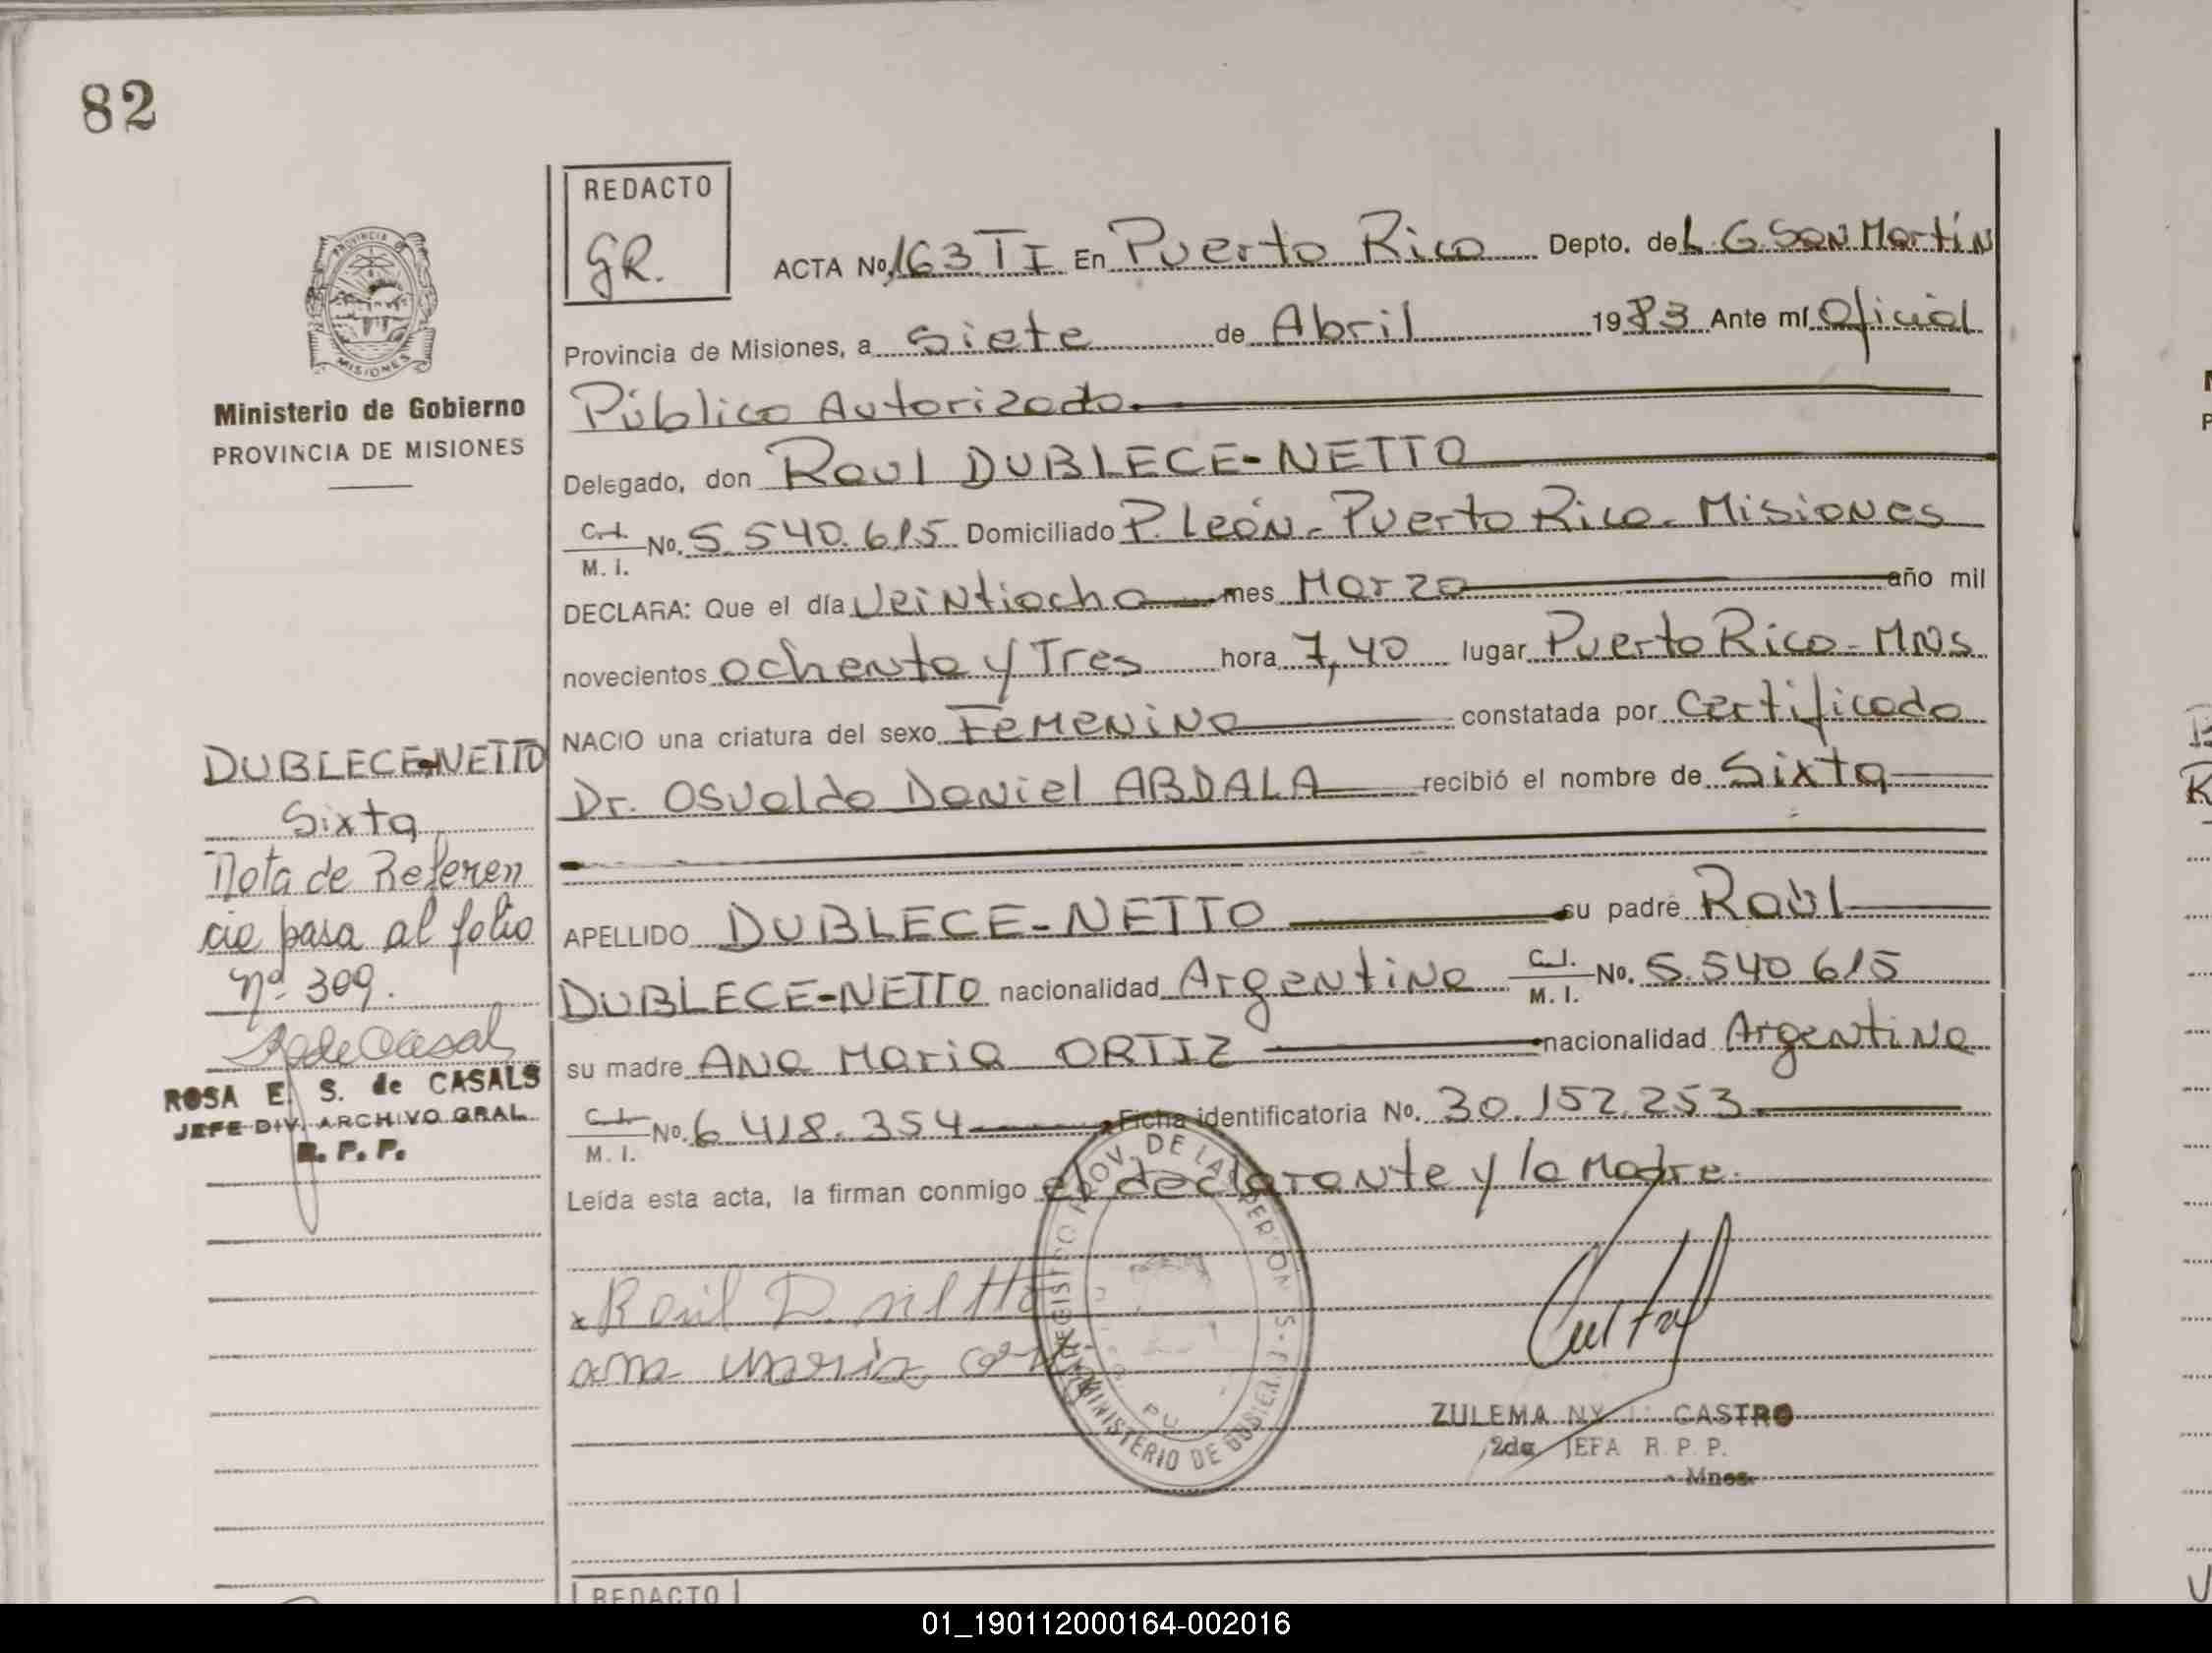 82
REDACTO
GR.
ACTA No. 163 TI En Puerto Rico Depto. de L. G. San Martín
Provincia de Misiones, a siete de Abril 1983 Ante mí Oficial
Público Autorizado
Delegado, don Raul DUBLECE-NETTO
C.I. M.I. No. 5.540.615 Domiciliado P. León - Puerto Rico - Misiones
DECLARA: Que el día veintiocho mes Marzo año mil
novecientos ochenta y Tres hora 7,40 lugar Puerto Rico - MNS
NACIO una criatura del sexo Femenino constatada por Certificado
Dr. Osvaldo Daniel ABDALA recibió el nombre de Sixta
APELLIDO DUBLECE-NETTO su padre Raúl
DUBLECE-NETTO nacionalidad Argentino C.I. M.I. No. 5.540.615
su madre Ana Maria ORTIZ nacionalidad Argentina
C.I. M.I. No. 6.418.354 Ficha identificatoria No. 30.152.253
Leída esta acta, la firman conmigo el declarante y la Madre.
x Raúl D. netto
ana maria
REGISTRO PROV. DE LAS PERSONAS - MINISTERIO DE GOBIERNO
ZULEMA CASTRO
2da JEFA R. P. P.
Mnes.
REDACTO
PROVINCIA DE MISIONES
Ministerio de Gobierno
PROVINCIA DE MISIONES
DUBLECE-NETTO
Sixta
Nota de Referen
cia pasa al folio
nº 309.
ROSA E. S. de CASALS
JEFE DIV. ARCHIVO GRAL.
R. P. P.
01_190112000164-002016